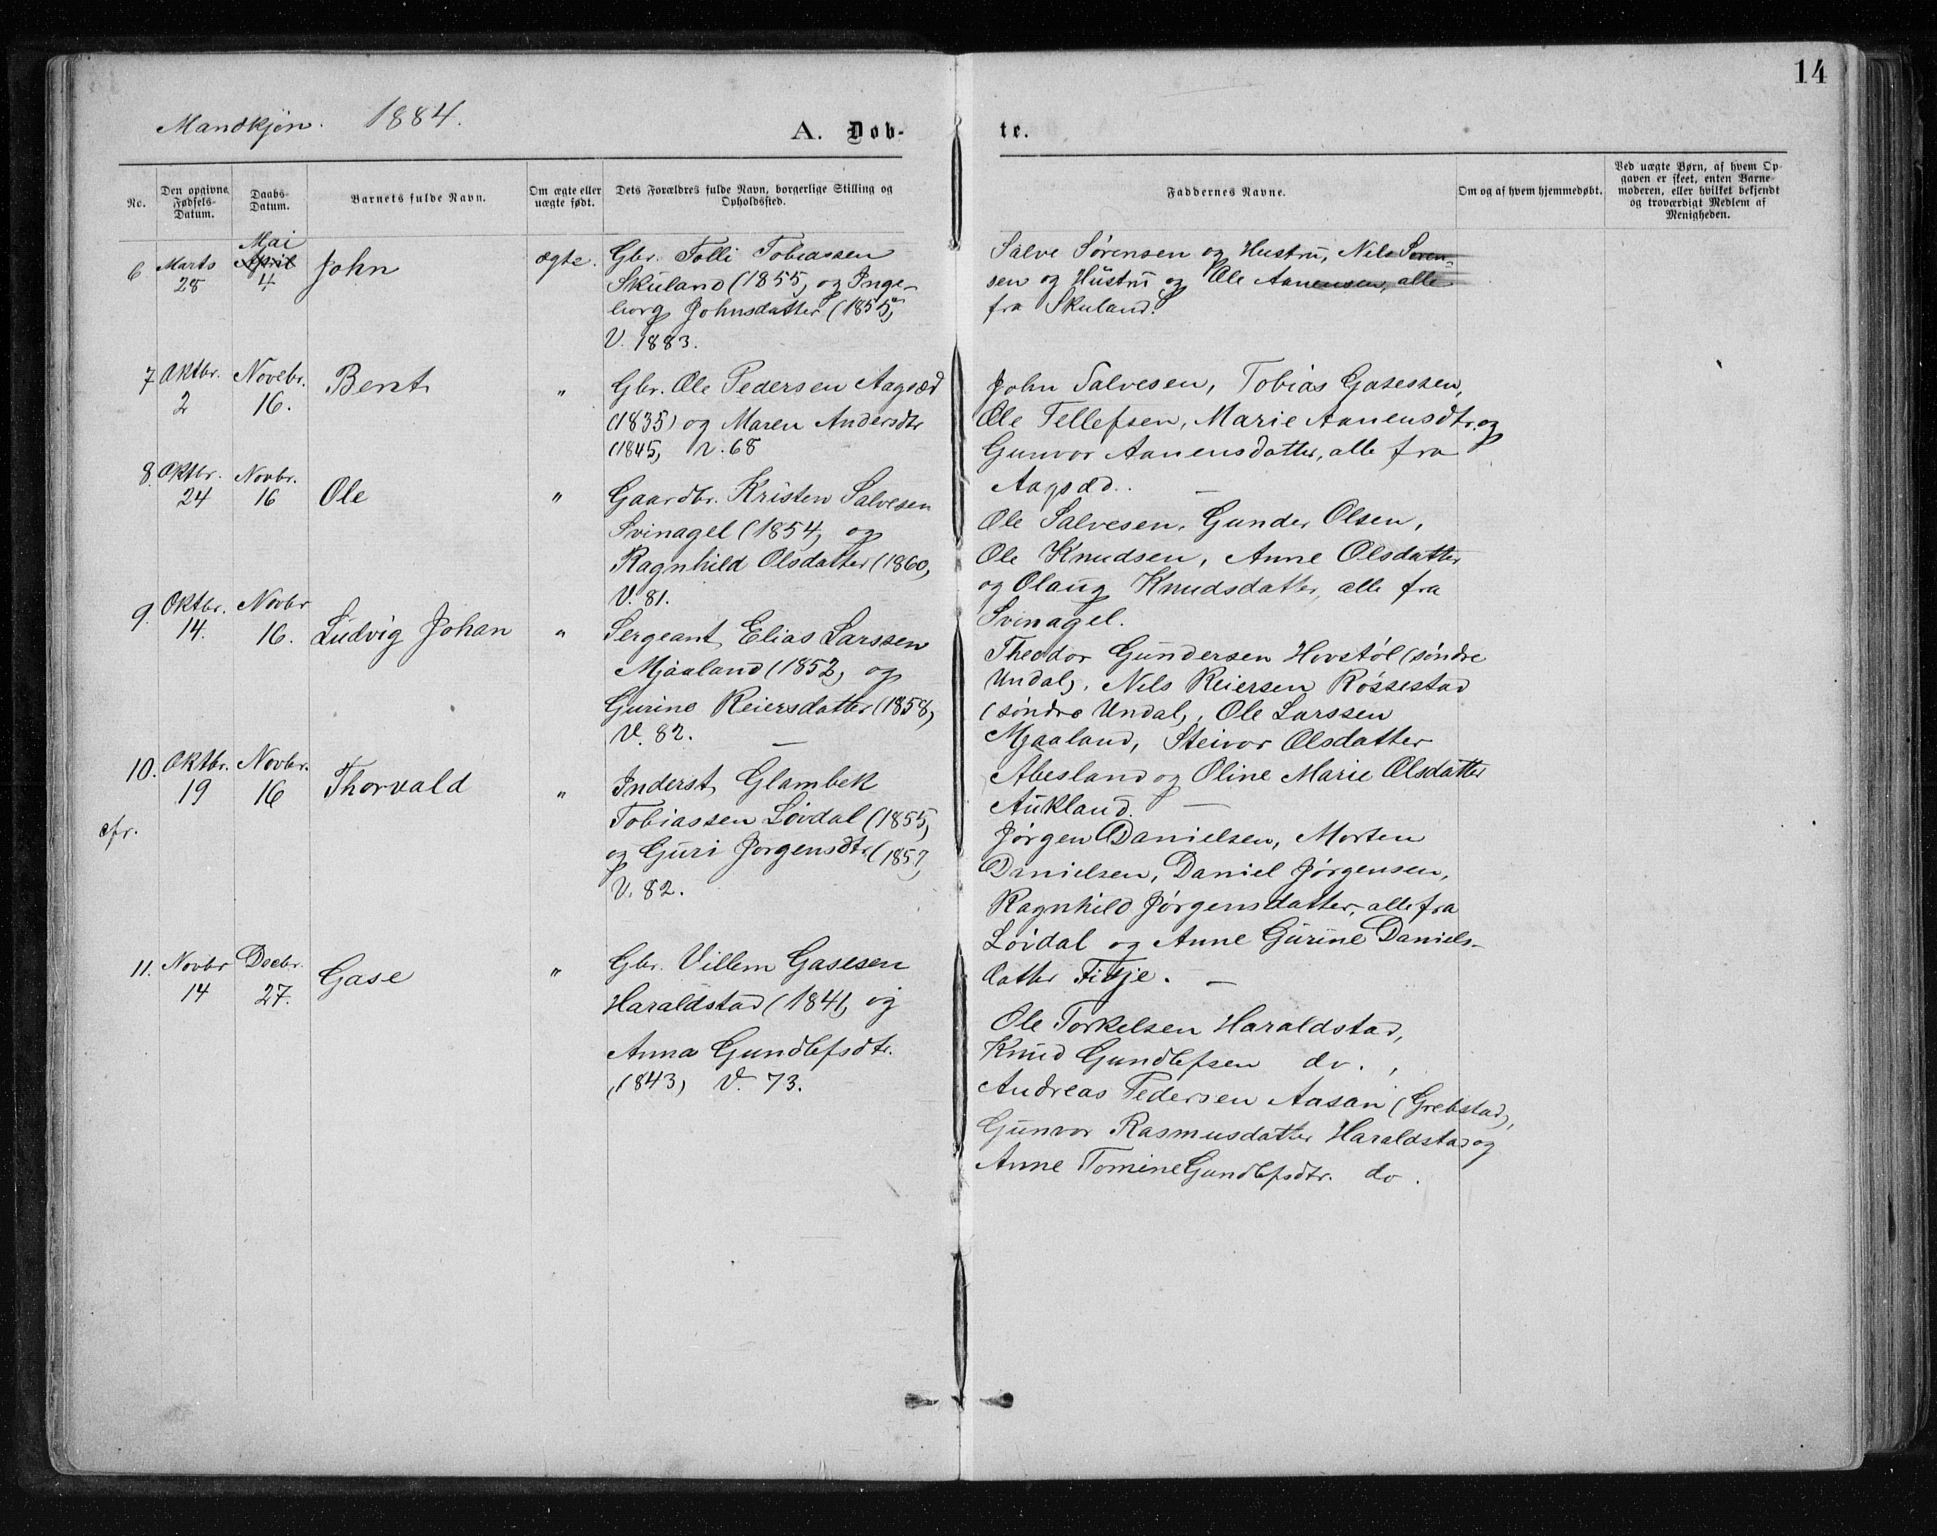 14
Mandkjøn. 1884.
A. Døb-
te.
No.
Den opgivne Fødsels-Datum.
Daabs-Datum.
Barnets fulde Navn.
Om ægte eller uægte født.
Dets Forældres fulde Navn, borgerlige Stilling og Opholdssted.
Faddernes Navne.
Om og af hvem hjemmedøbt.
Ved uægte Børn, af hvem Op-
gaven er skeet, enten Barne-
moderen, eller hvilket bekjendt
og troværdigt Medlem af
Menigheden.
6 Marts 28 April Mai 4 John ægte.
Gbr. Tolli Tobiassen
Skuland (1855, og Inge-
borg Johnsdatter (1855,
V. 1883.
Salve Sørensen og Hustru, Nils Søren-
sen og Hustru og Ole Aanensen, alle
fra Skuland.
7 Oktbr. 2 Novebr. 16. Bent "
Gbr. Ole Pedersen Aagsæd
(1835) og Maren Andersdtr
(1845, v. 68
John Salvesen, Tobias Gasessen,
Ole Tellefsen, Marie Aanensdtr. og
Gunvor Aanensdatter, alle fra
Aagsæd. —
8. Oktbr. 24 Novbr. 16 Ole "
Gaardbr. Kristen Salvesen
Svinagel (1854, og
Ragnhild Olsdatter (1860,
V. 81.
Ole Salvesen, Gunder Olsen,
Ole Knudsen, Anne Olsdatter
og Olaug Knudsdatter, alle fra
Svinagel.
9. Oktbr. 14. Novbr 16. Ludvig Johan "
Sergeant Elias Larssen
Mjaaland (1852, og
Gurine Reiersdatter (1858,
V. 82. —
Theodor Gundersen Hovstøl (søndre
Undal, . Nils Reiersen Røssestad
(søndre Undal, . Ole Larssen
Mjaaland, Steivor Olsdatter
Abesland og Oline Marie Olsdatter
Aukland. —
10. Oktbr. 19 Novbr. 16 Thorvald "
cfr.
Inderst Glambek
Tobiassen Løvdal (1855,
og Guri Jørgensdtr. (1857,
V. 82.
Jørgen Danielsen, Morten
Danielsen, Daniel Jørgensen,
Ragnhild Jørgensdatter, alle fra
Løvdal og Anne Gurine Daniels-
datter Fidje. —
11. Novbr 14 Decbr. 27. Gase "
Gbr. Villem Gasesen
Haraldstad (1841, og
Anna Gundlefsdtr.
(1843, V. 73.
Ole Torkelsen Haraldstad,
Knud Gundlefsen do. ,
Andreas Pedersen Aasan (Grebstad,
Gunvor Rasmusdatter Haraldstad og
Anne Tomine Gundlefsdtr. do.